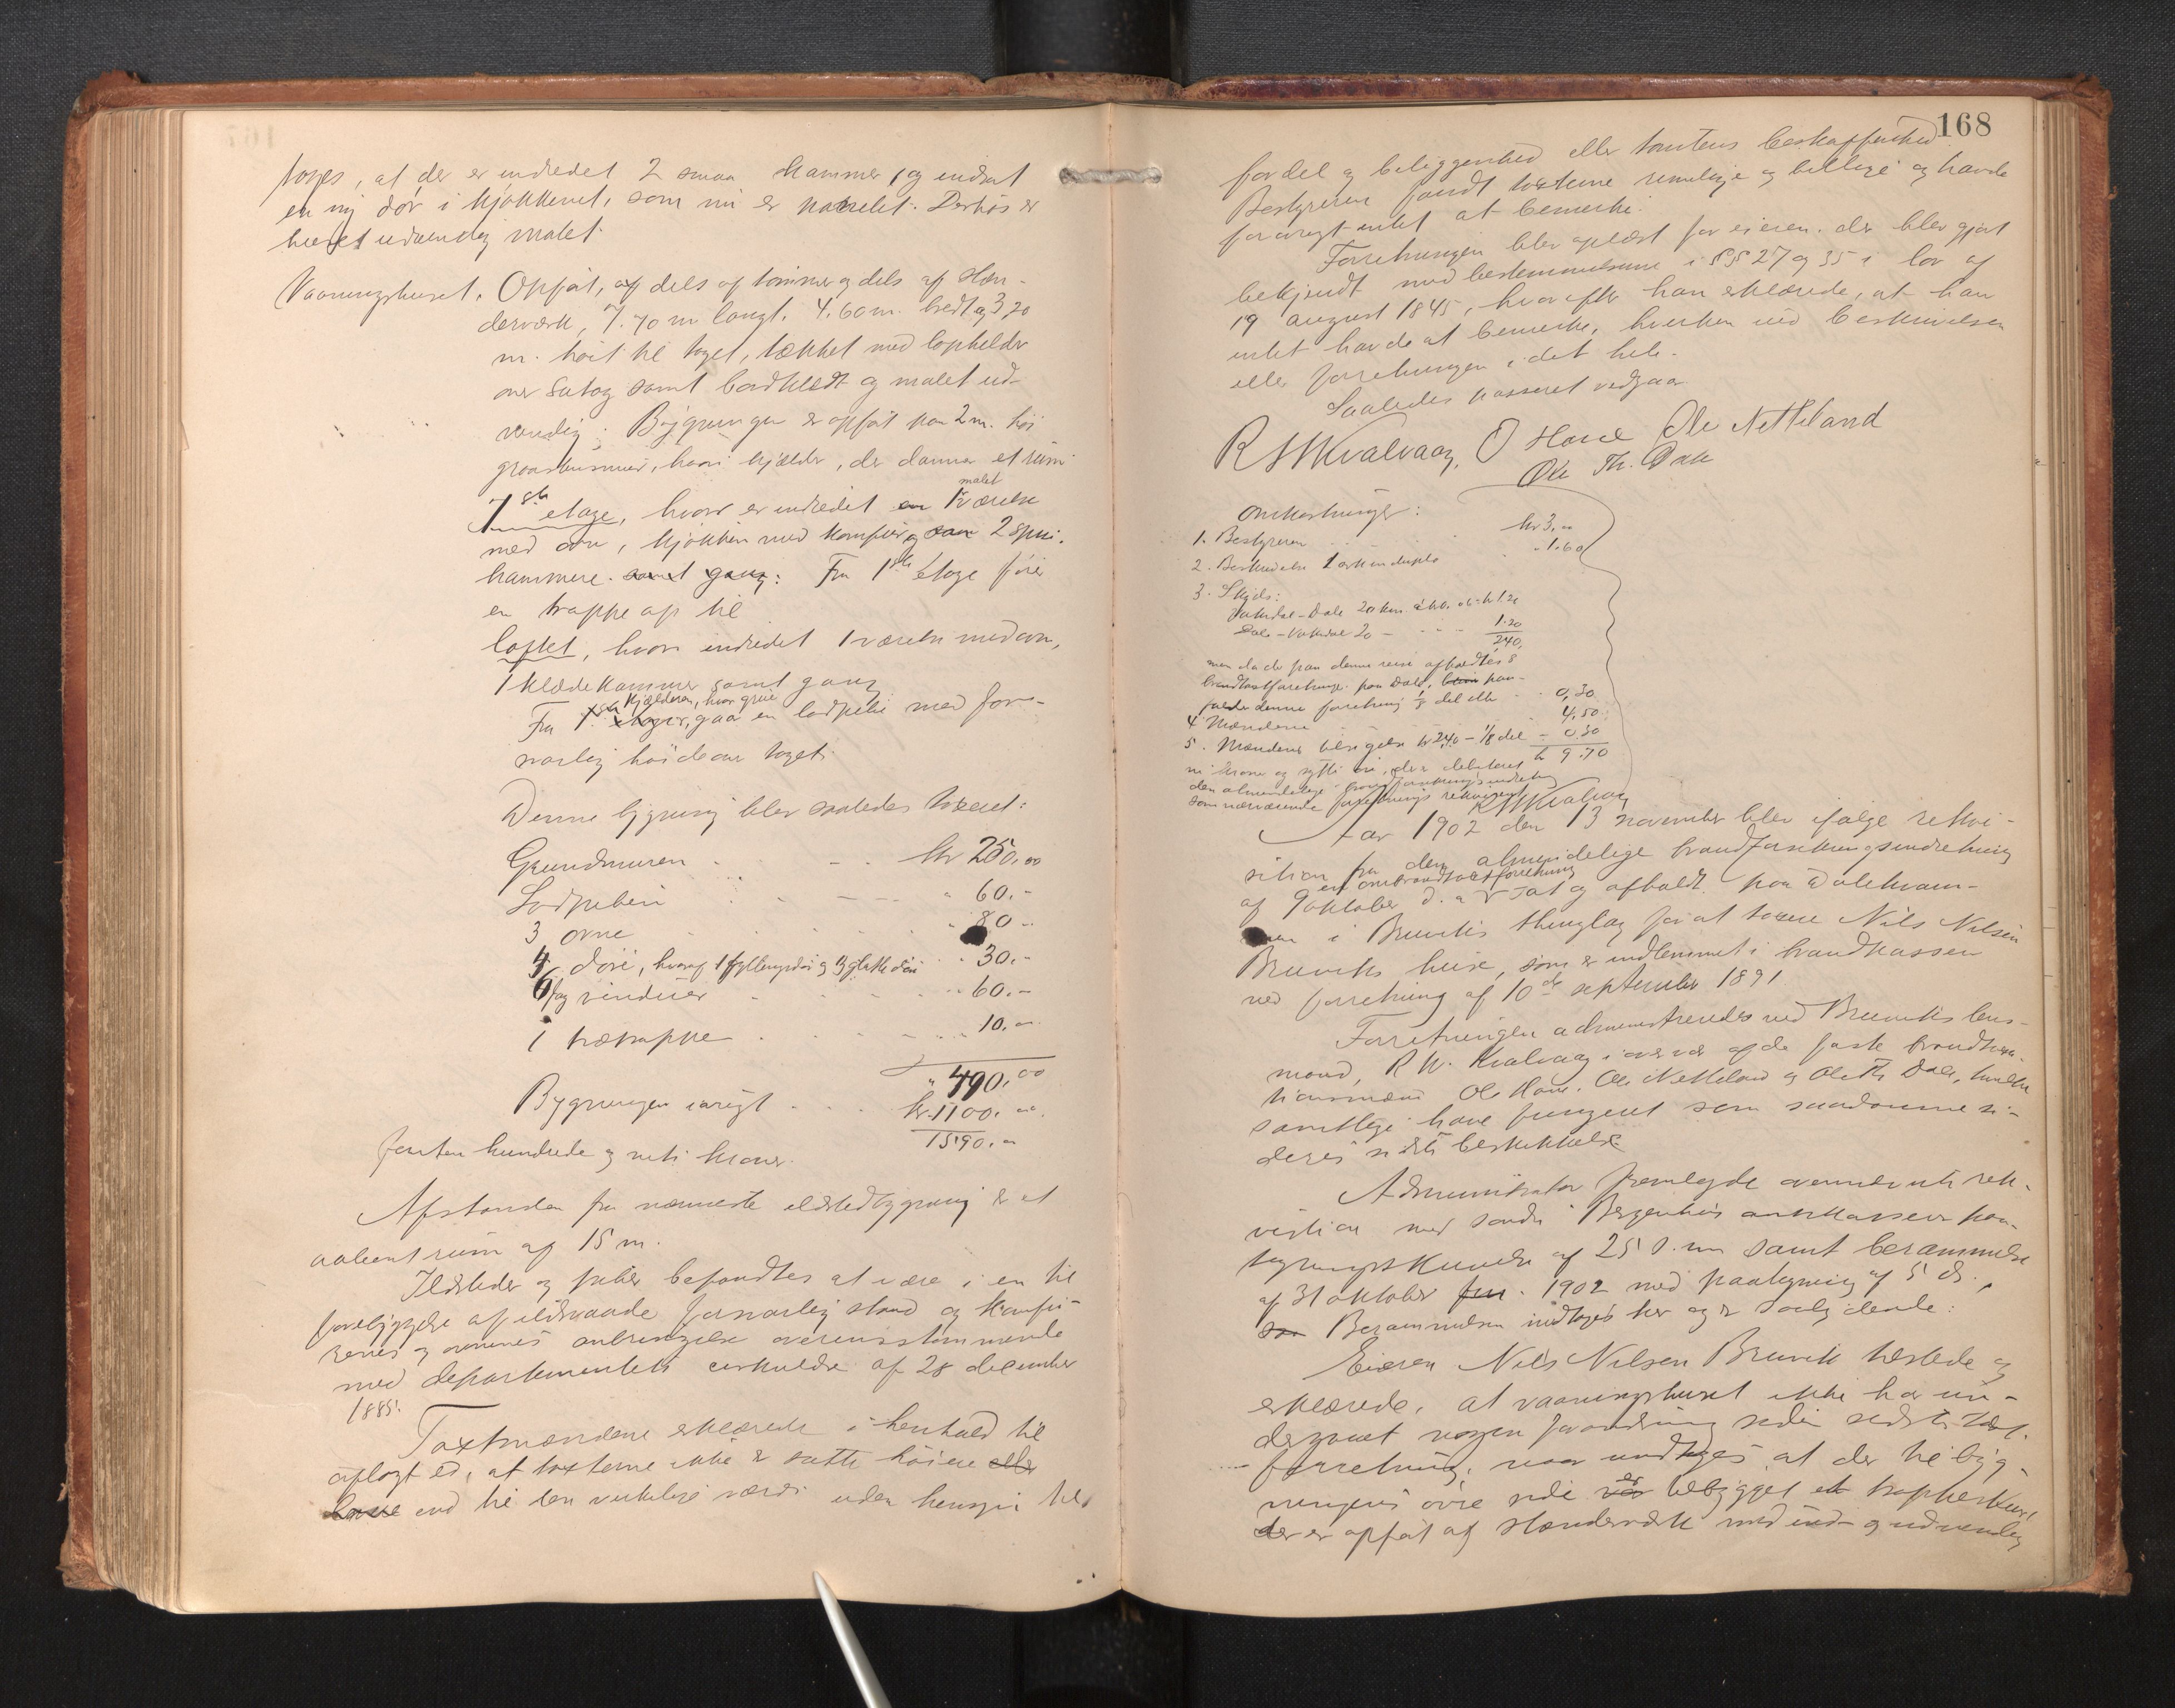 tages, at der er indredet 2 smaa kammer, og indsat
en ny dør i kjøkkenet, som nu er panelet. Derhos er
huset udvendig malet.
Vaaningshuset. Opført, af dels af tømmer og dels af stæn-
derværk, 7.70 m langt, 4.60 m. bredt og 3.20
m. høit til taget, tækket med
over sutag samt bordklædt og malet ud-
vendig. Bygningen er opført paa 2 m. høi
graastensmur, hvori kjælder, der danner et rum
malet
1ste etage, hvor er indredet en 1 værelse
med ovn, kjøkken med komfur og sam 2 spis-
kammere. samt gang: Fra 1ste etage fører
en trappe op til
loftet, hvori indredet 1 værelse med ovn,
1 klædekammer samt gang
kjælderen, hvor grue
Fra 1ste etager, gaar en ladpibe med for-
svarlig høide over taget.
Denne bygning blev saaledes taxeret:
Grundmuren kr 250.00
Ladpiben " 60.-
3 ovne " 80 -
4 døre, hvoraf 1 fyllingsdør og 3 glatte døre " 30.-
6 fag vinduer " 60.-
1 trætrappe " 10.-
" 490.00
Bygningen iøvrigt kr. 1100.00
1590.00
femten hundrede og niti kroner.
Afstanden fra nærmeste ildstedbygning er et
aabent rum af 15 m.
Ildsteder og piber befandtes at være i en til
forebyggelse af ildsvaade forsvarlig stand og komfu-
rernes og ovnenes anbringelse overensstemmende
med departementets cirkulære af 28 december
1885.
Taxtmændene erklærede i henhold til
aflagt ed, at taxterne ikke er satte høiere eller
lavere end til den virkelige værdi uden hensyn til
168
fordel og beliggenhed eller tomtens beskaffenhed
Bestyreren fandt taxterne rimelige og billige og havde
forøvrigt intet at bemerke.
Forretningen blev oplæst for eieren. der blev gjort
bekjendt med bestemmelserne i §§ 27 og 35 i lov af
19 august 1845, hvorefter han erklærede, at han
intet havde at bemerke, hverken ved beskrivelsen
eller forretningen i det hele.
Saaledes passeret vedgaar
R W Kvalvaag, O Horne Ole Netteland
Ole Th. Dale
Omkostninger:
1. Bestyreren kr 3.00
2. Beskrivelse 1 ark in duplo " 1.60
3. Skyds:
Vaksdal - Dale 20 km. à kr 0.06 = kr 1.20
Dale - Vaksdal 20 - 1.20
2.40
men da der paa denne reise afholdtes 8
brandtaxtforretninger paa Dale, paa-
falder denne forretning 1/8 del eller 0,30
4 Mændene 4.50
5. Mændenes tilsigelse kr 2.40 - 1/8 del = 0.30
kr 9.70
ni kroner og sytti øre, der debiteres
den almindelige brandforsikringsindretning
som nærværende forretnings rekvirent
R W Kvalvaag
Aar 1902 den 13 november blev ifølge rekvi-
sition fra den almindelige brandforsikringsindretning
en ombrandtaxtforretning
af 9 oktober d. a. sat og afholdt paa Dalekvam-
men i Bruviks thinglag for at taxere Nils Nilsen
Bruviks huse, som er indlemmet i brandkassen
ved forretning af 10de september 1891
Forretningen administreredes ved Bruviks lens-
mand, R W. Kvalvaag i overvær af de faste brandtaxa-
tionsmænd Ole Horne, Ole Netteland og Ole Th Dale, hvilke
samtlige have fungeret som saadanne si-
den sidste beskikkelse
Administrator fremlagde ovennævnte rek-
visition med søndre Bergenhus amtskasserer paa-
tegningskrivelse af 25 s. m samt berammelse
af 31 oktober 1902 med paategning af 5 ds.,
Berammelsen indtages her og er saalydende:
Eieren Nils Nilsen Bruvik tilstede og
erklærede, at vaaningshuset ikke har un-
dergaaet nogen forandring siden sidste taxt-
forretning, naar undtages, at der til byg-
ningens øvre side var er tilbygget et trappeskur,
der er opført af stænderværk med ind- og udvendig